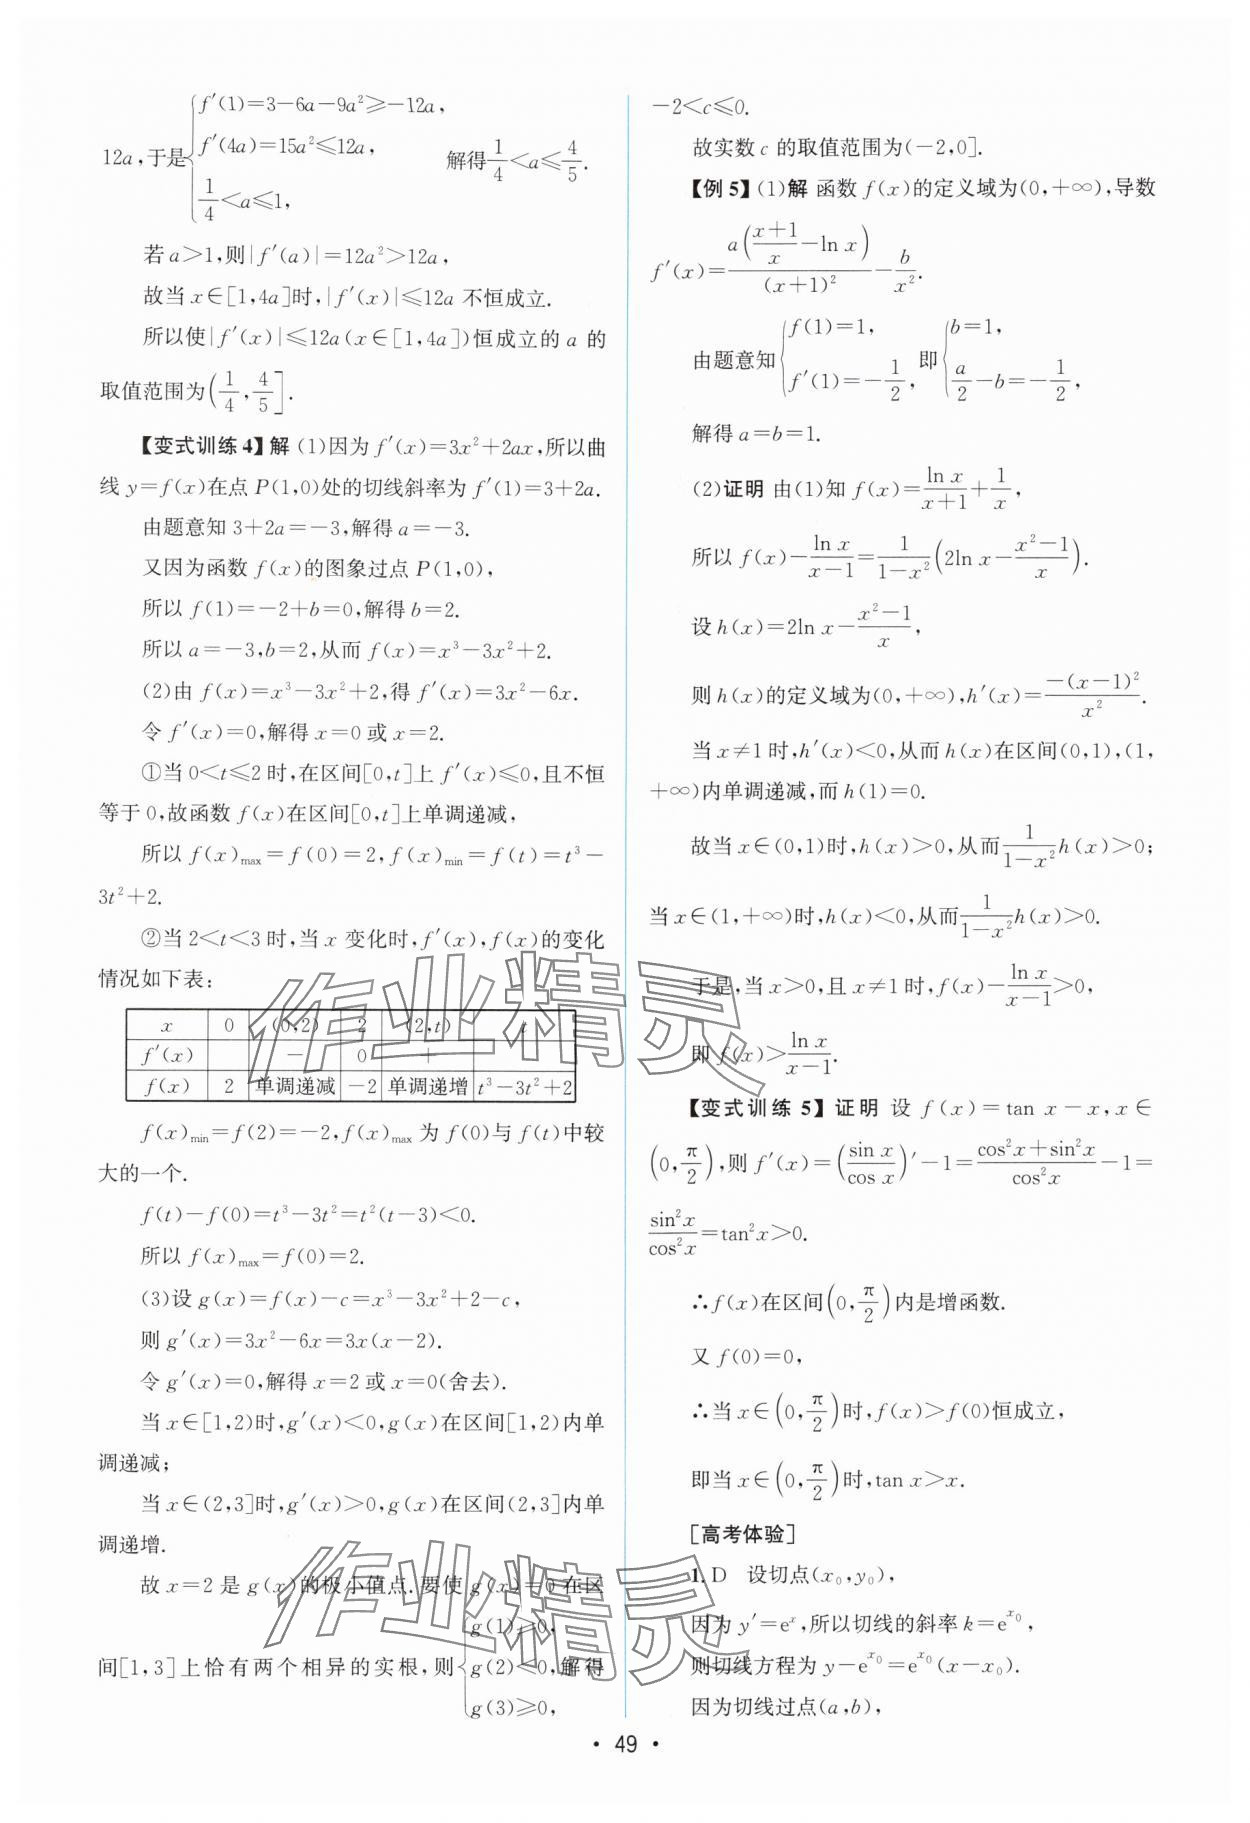 12a,于是{f′(1)=3-6a-9a²≥-12a,
f′(4a)=15a²≤12a,
1/4<a≤1,
解得1/4<a≤4/5.
若a>1,则|f′(a)|=12a²>12a,
故当x∈[1,4a]时,|f′(x)|≤12a不恒成立.
所以使|f′(x)|≤12a(x∈[1,4a])恒成立的a的
取值范围为(1/4,4/5].
【变式训练4】解 (1)因为f′(x)=3x²+2ax,所以曲
线y=f(x)在点P(1,0)处的切线斜率为f′(1)=3+2a.
由题意知3+2a=-3,解得a=-3.
又因为函数f(x)的图象过点P(1,0),
所以f(1)=-2+b=0,解得b=2.
所以a=-3,b=2,从而f(x)=x³-3x²+2.
(2)由f(x)=x³-3x²+2,得f′(x)=3x²-6x.
令f′(x)=0,解得x=0或x=2.
①当0<t≤2时,在区间[0,t]上f′(x)≤0,且不恒
等于0,故函数f(x)在区间[0,t]上单调递减,
所以f(x)max=f(0)=2,f(x)min=f(t)=t³-
3t²+2.
②当2<t<3时,当x变化时,f′(x),f(x)的变化
情况如下表:
x 0 (0,2) 2 (2,t) t
f′(x) - 0 +
f(x) 2 单调递减 -2 单调递增 t³-3t²+2
f(x)min=f(2)=-2,f(x)max为f(0)与f(t)中较
大的一个.
f(t)-f(0)=t³-3t²=t²(t-3)<0.
所以f(x)max=f(0)=2.
(3)设g(x)=f(x)-c=x³-3x²+2-c,
则g′(x)=3x²-6x=3x(x-2).
令g′(x)=0,解得x=2或x=0(舍去).
当x∈[1,2)时,g′(x)<0,g(x)在区间[1,2)内单
调递减;
当x∈(2,3]时,g′(x)>0,g(x)在区间(2,3]内单
调递增.
故x=2是g(x)的极小值点.要使g(x)=0在区
间[1,3]上恰有两个相异的实根,则{g(1)≥0,
g(2)<0,解得
g(3)≥0,
-2<c≤0.
故实数c的取值范围为(-2,0].
【例5】(1)解 函数f(x)的定义域为(0,+∞),导数
f′(x)=a((x+1)/x-ln x)/(x+1)²-b/x².
由题意知{f(1)=1,
f′(1)=-1/2,
即{b=1,
a/2-b=-1/2,
解得a=b=1.
(2)证明 由(1)知f(x)=ln x/(x+1)+1/x,
所以f(x)-ln x/(x-1)=1/(1-x²)(2ln x-(x²-1)/x).
设h(x)=2ln x-(x²-1)/x,
则h(x)的定义域为(0,+∞),h′(x)=-(x-1)²/x².
当x≠1时,h′(x)<0,从而h(x)在区间(0,1),(1,
+∞)内单调递减,而h(1)=0.
故当x∈(0,1)时,h(x)>0,从而1/(1-x²)h(x)>0;
当x∈(1,+∞)时,h(x)<0,从而1/(1-x²)h(x)>0.
于是,当x>0,且x≠1时,f(x)-ln x/(x-1)>0,
即f(x)>ln x/(x-1).
【变式训练5】证明 设f(x)=tan x-x,x∈
(0,π/2),则f′(x)=(sin x/cos x)′-1=(cos²x+sin²x)/cos²x-1=
sin²x/cos²x=tan²x>0.
∴f(x)在区间(0,π/2)内是增函数.
又f(0)=0,
∴当x∈(0,π/2)时,f(x)>f(0)恒成立,
即当x∈(0,π/2)时,tan x>x.
[高考体验]
1.D 设切点(x₀,y₀),
因为y′=eˣ,所以切线的斜率k=e^x₀,
则切线方程为y-e^x₀=e^x₀(x-x₀).
因为切线过点(a,b),
·49·
作业精灵
作业精灵